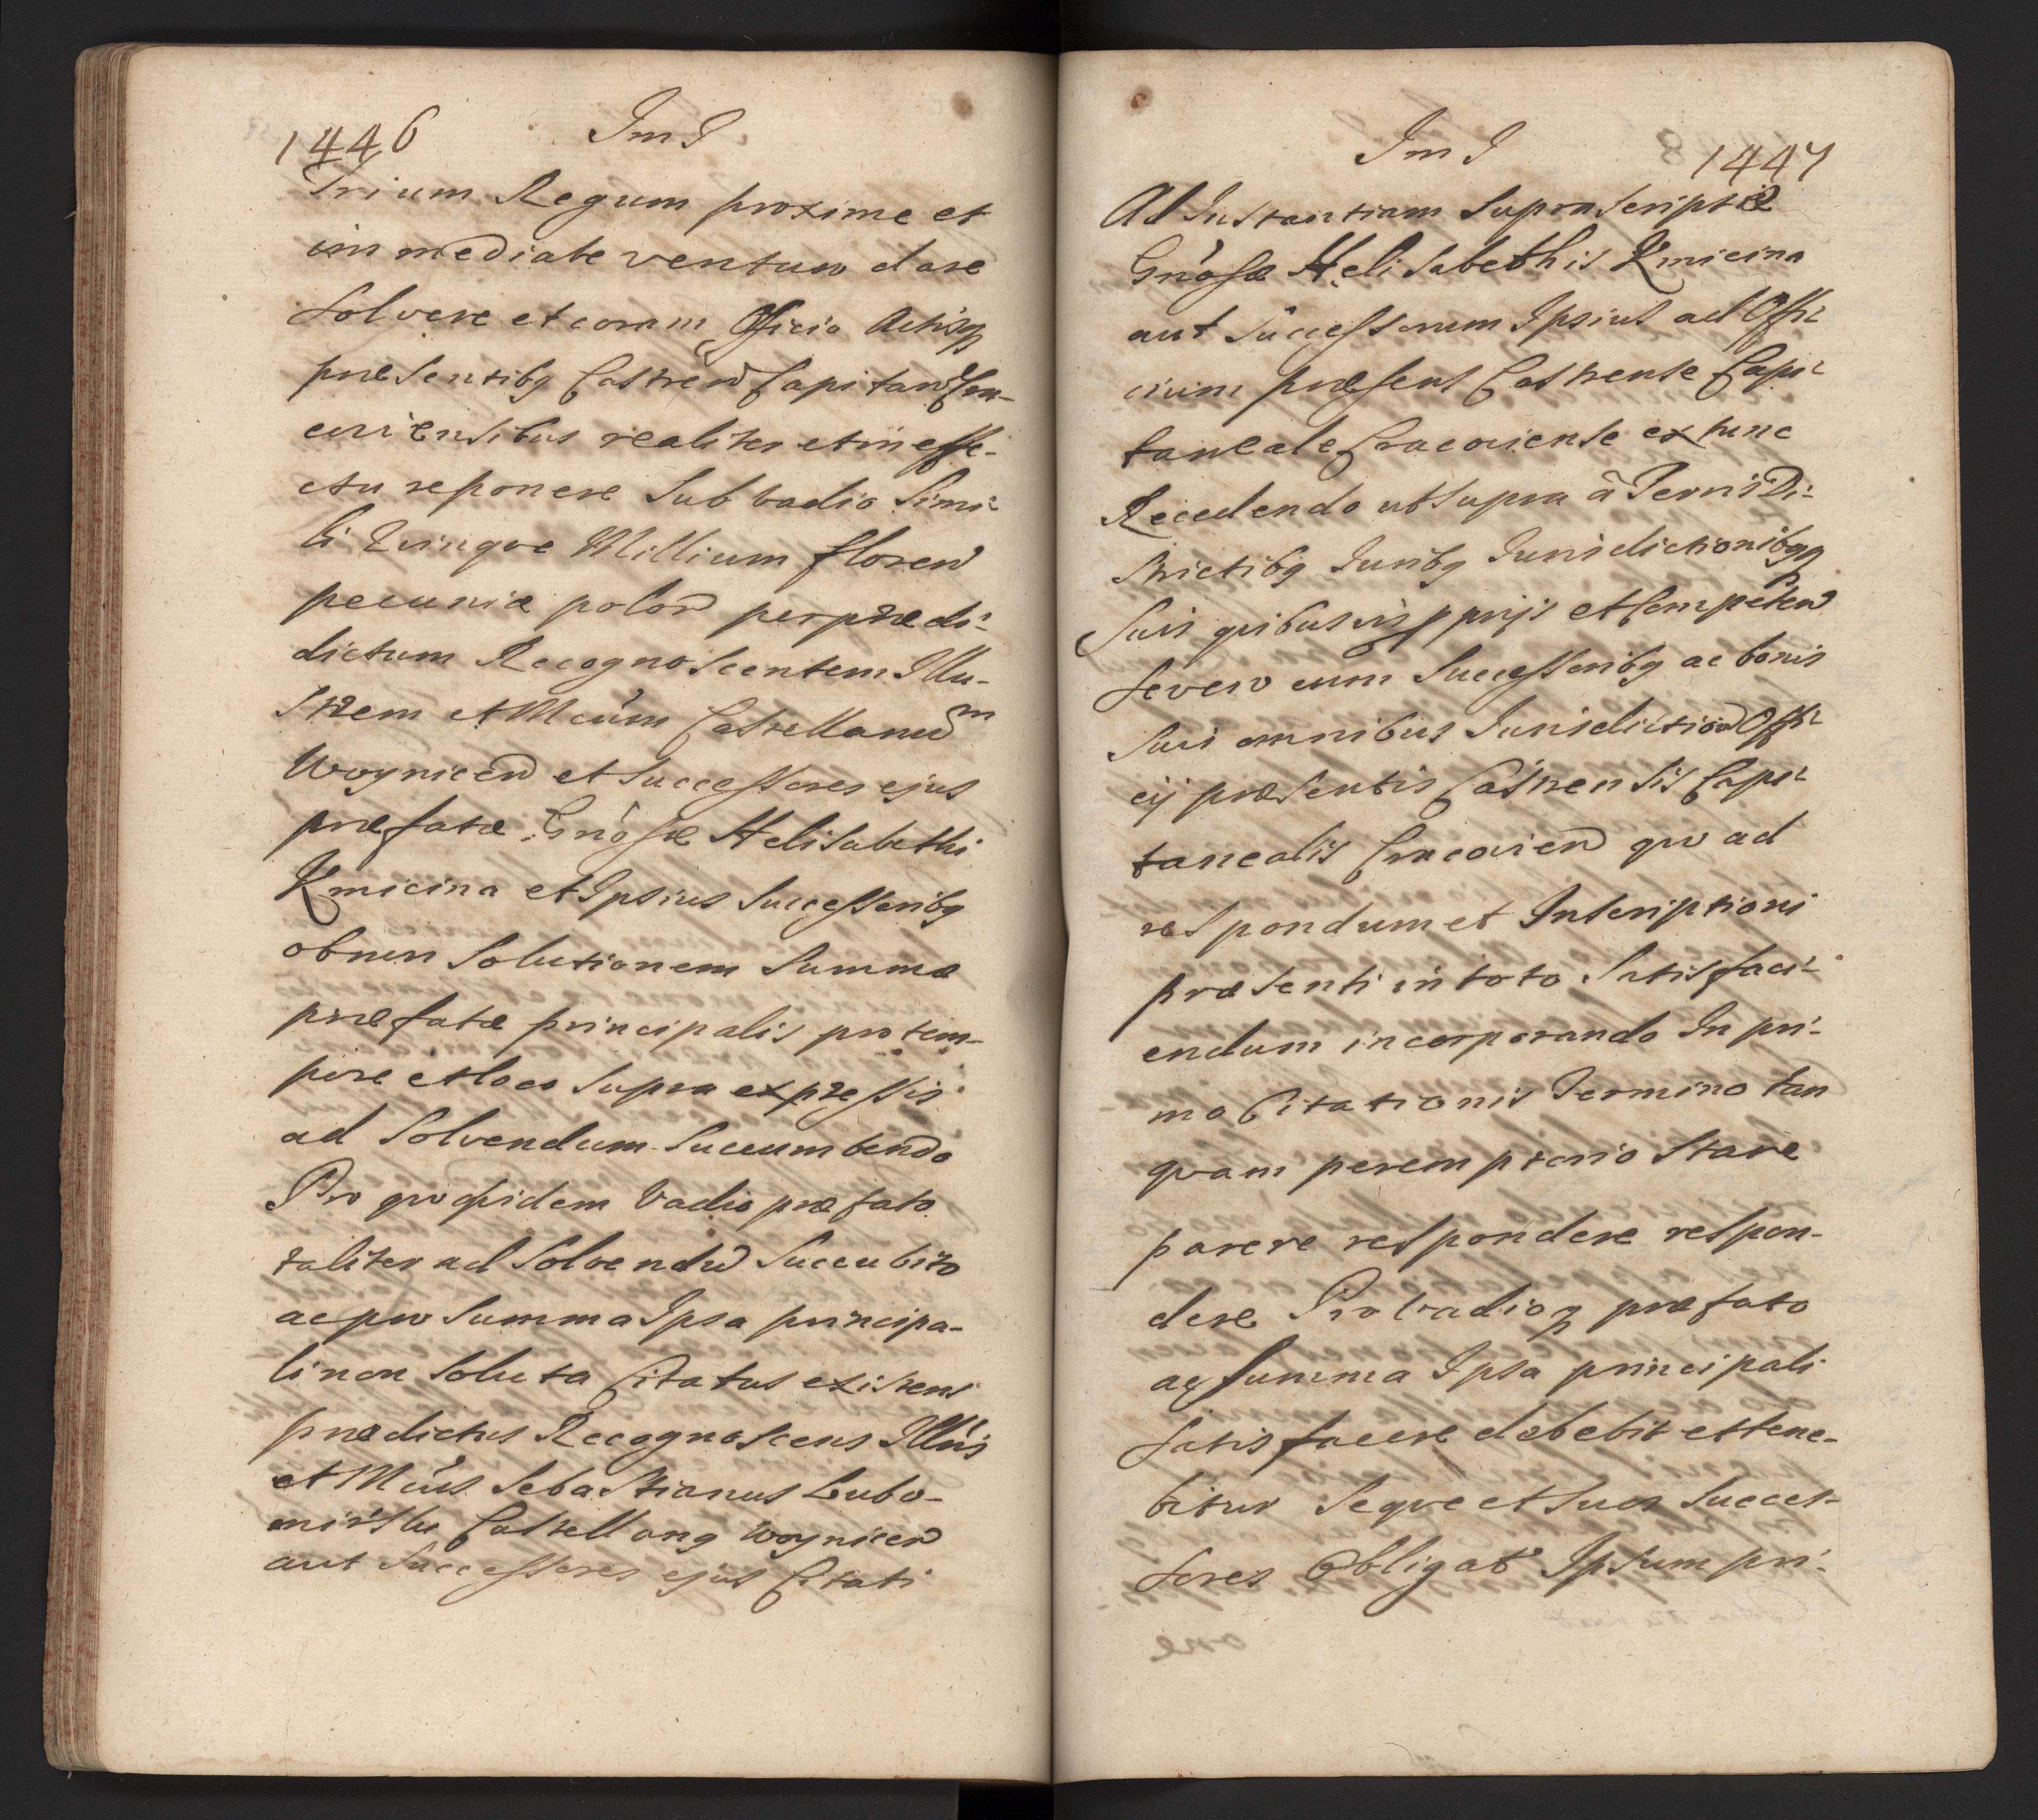 1446 Im I
Trium Regum proxime et
immediate ventuw dare
Solvere et coram Officio Actisq
præsentibq Castreñ Capitañ Cra-
coviensibus realiter et in effe-
ctu reponere Sub vadio Simi-
li Quinqve Millium floreñ
pecuniæ poloñ per prædi-
dictum Recognoscentem Illu-
Strem et Mcum Castellanum
Woyniceñ et Successores ejus
præfatæ Gnosæ Helisabethi
Kmicina et Ipsius Successoribq
ob non Solutionem Summæ
præfatæ principalis pro tem-
pore et loco Supra expressis
ad Solvendum Succumbendo
Pro qvo qvidem Vadio præfato
taliter ad Solvendũ Succubito
ac pro Summa Ipsa principa-
li non Soluta Citatus existens
prædictus Recognoscens Illris
et Mcus Sebastianus Lubo-
mirski Castellanq Woyniceñ
aut Successores ejus Citati
Im I 1447
Ad Instantiam SupraScriptæ
Gnosæ Helisabethis Kmicina
aut Successorum Ipsius ad Offi-
cium præsens Castrense Capi-
taneale Cracoviense ex tunc
Recedendo ut supra à Terris Di-
Strictibq Juribq Jurisdictionibqq
Suis qvibusvis pprijs et Competeñ
Seveo cum Successoribq ac bonis
Suis omnibus Jurisdictioñ Offi-
cij præsentis Castrensis Capi-
tanealis Cracovieñ qvo ad
respondum et Inscriptioni
præsenti in toto Satisfaci-
endum incorporando In pri-
mo Citationis Termino tan
qvam peremptorio Stare
parere respondere respon-
dere Pro vadioq præfato
ac Summa Ipsa principali
Satisfacere debebit et tene-
bitur Seqve et Suos Succes-
sores Obligat Ipsum pri-